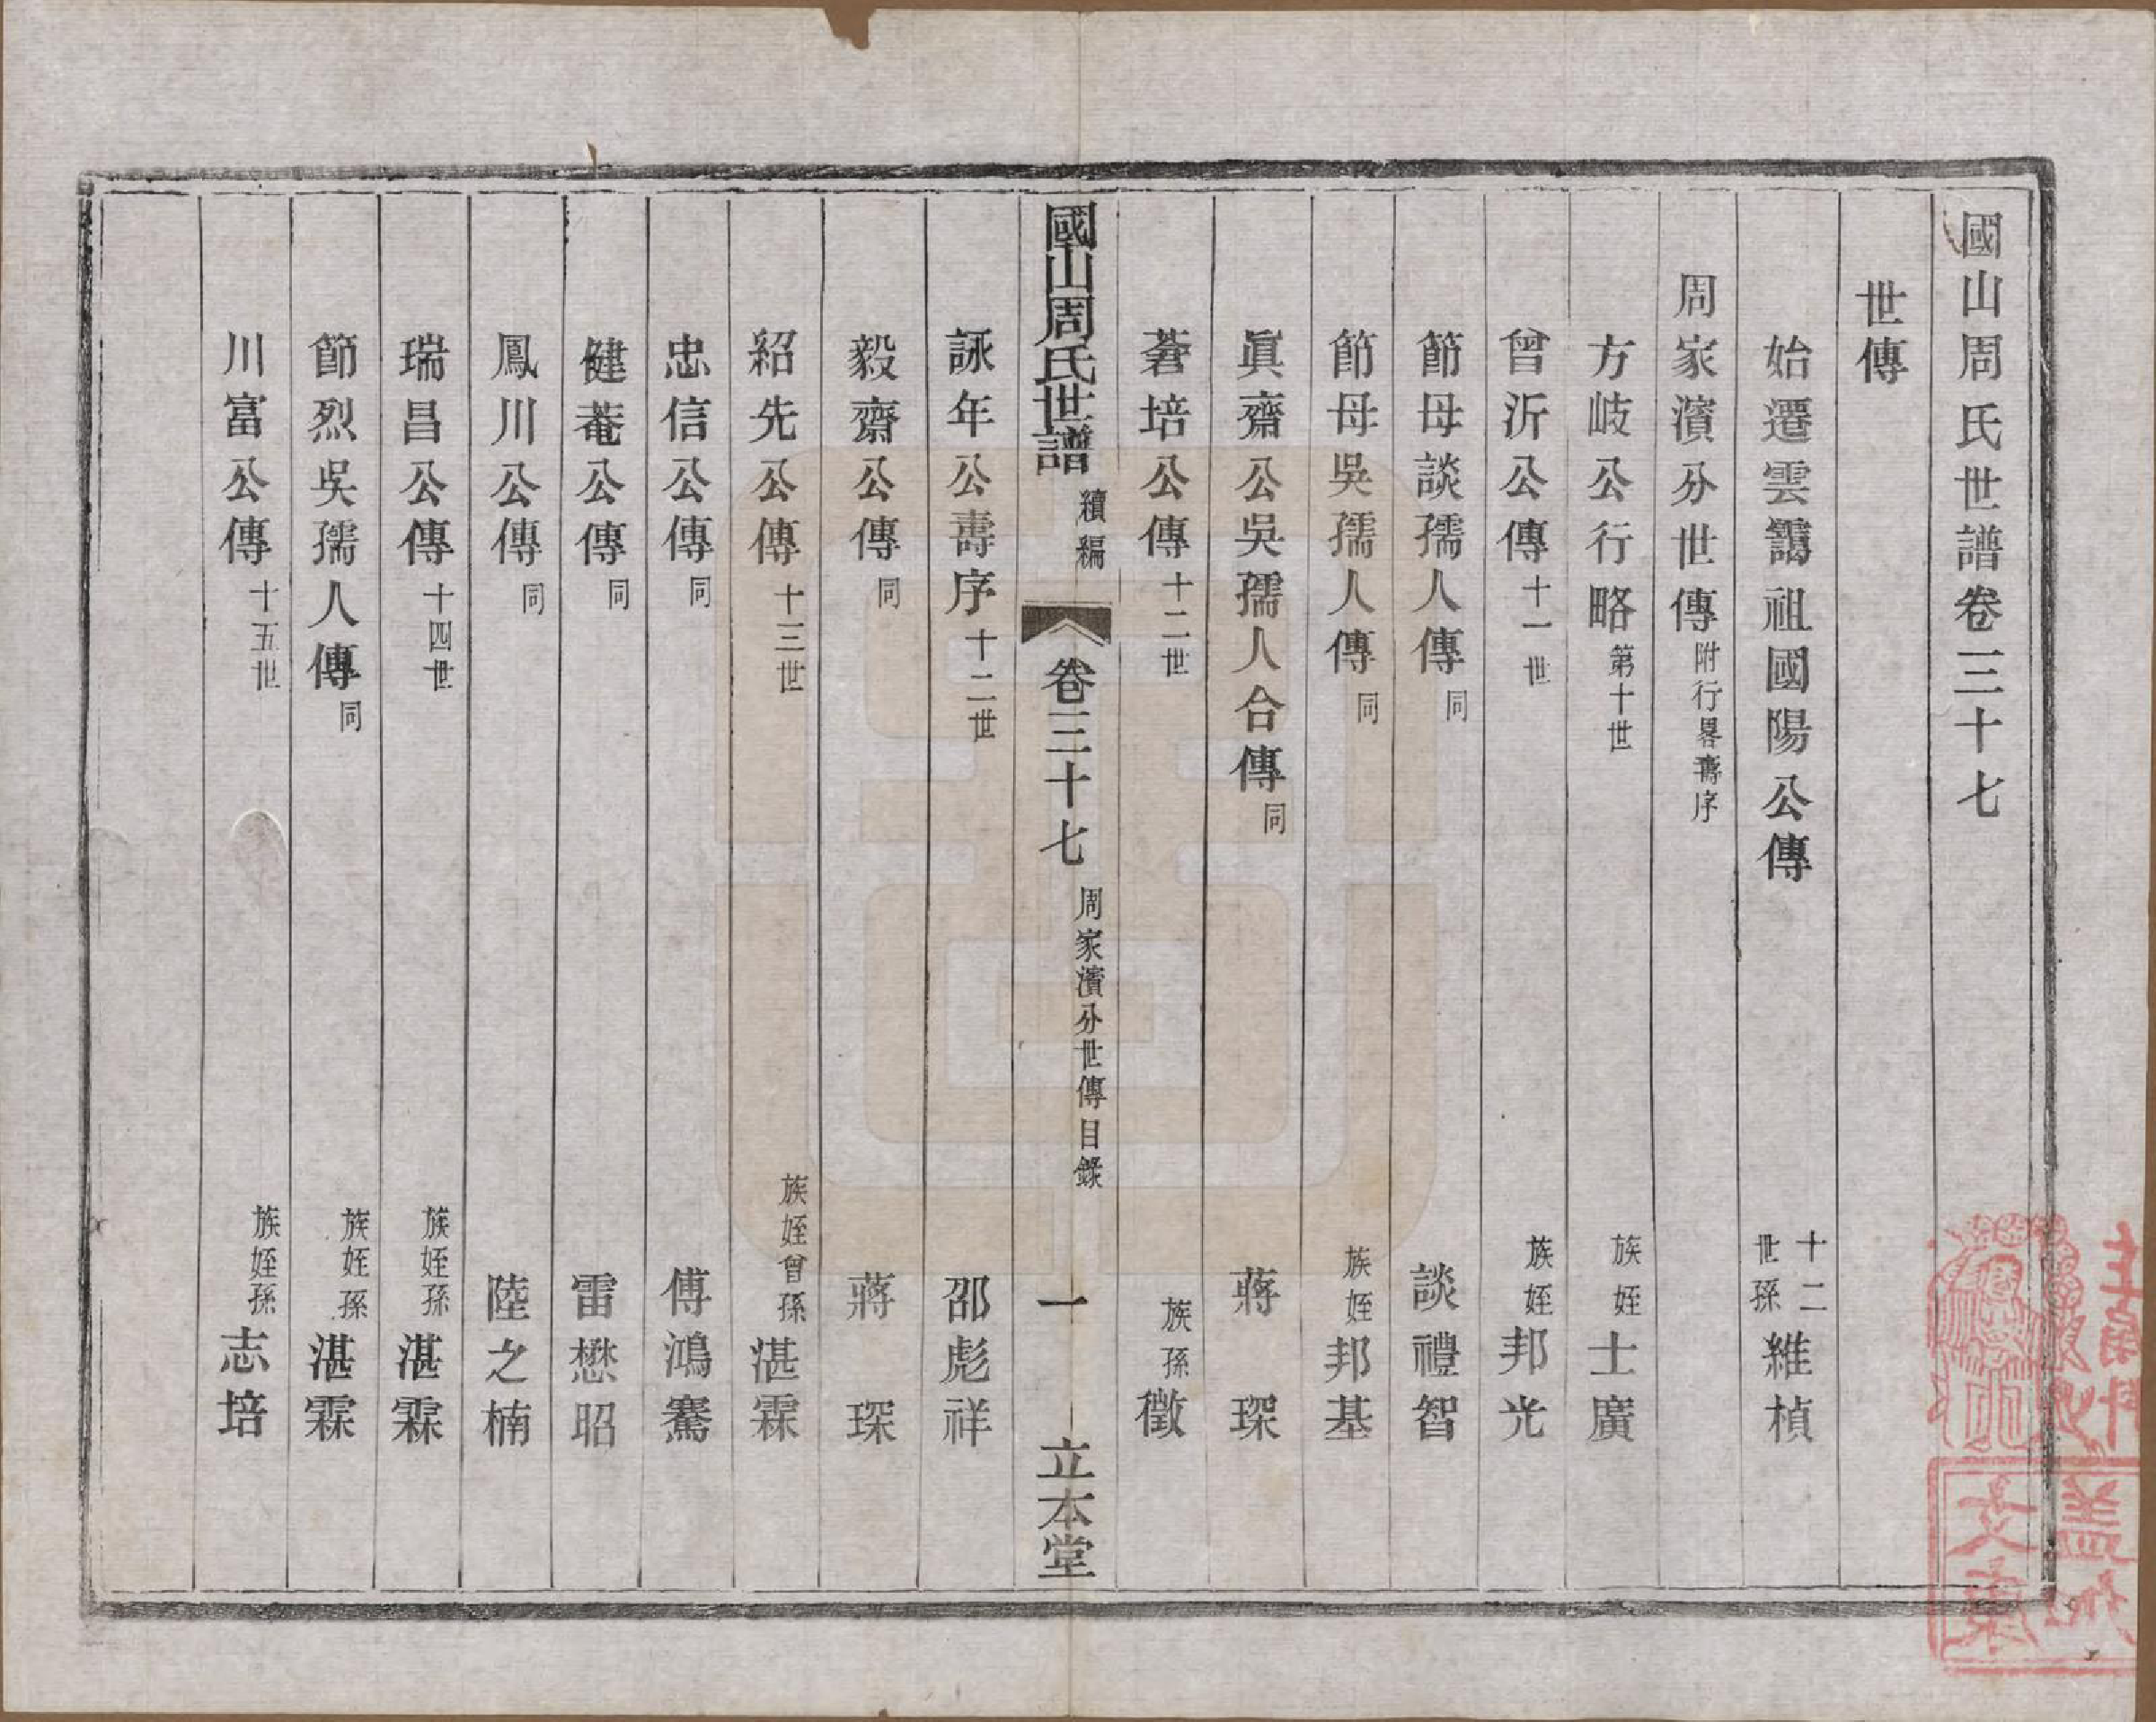 國山周氏世譜卷三十七
世傳
始遷雲靄祖國陽公傳 十二世孫維楨
周家濱分世傳 附行畧壽序
方岐公行略 第十世 族姪士廣
曾沂公傳 十一世 族姪邦光
節母談孺人傳 同 談禮智
節母吳孺人傳 同 族姪邦基
眞齋公吳孺人合傳 同 蔣琛
蒼培公傳 十二世 族孫徵
國山周氏世譜 續編 卷三十七 周家濱分世傳目錄 一 立本堂
詠年公壽序 十二世 邵彪祥
毅齋公傳 同 蔣琛
紹先公傳 十三世 族姪曾孫湛霖
忠信公傳 同 傅鴻騫
健菴公傳 同 雷懋昭
鳳川公傳 同 陸之楠
瑞昌公傳 十四世 族姪孫湛霖
節烈吳孺人傳 同 族姪孫湛霖
川富公傳 十五世 族姪孫志培